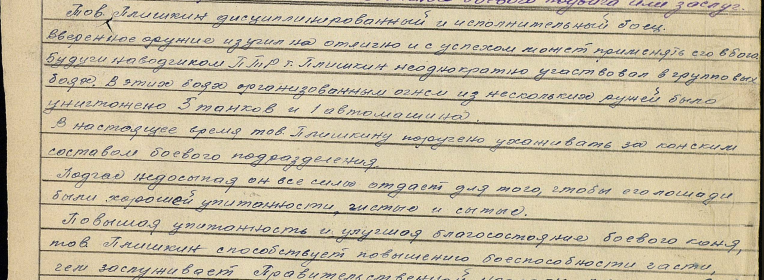 боевого подвига или заслуг.
Тов. Плишкин дисциплинированный и исполнительный боец.
Вверенное оружие изучил на отлично и с успехом может применять его в бою.
Будучи наводчиком ПТР т. Плишкин неоднократно участвовал в групповых
боях. В этих боях организованным огнем из нескольких ружей было
уничтожено 5 танков и 1 автомашина.
В настоящее время тов. Плишкину поручено ухаживать за конским
составом боевого подразделения.
Подчас недосыпая он все силы отдает для того, чтобы его лошади
были хорошей упитанности, чистые и сытые.
Повышая упитанность и улучшая благосостояние боевого коня,
тов. Плишкин способствует повышению боеспособности части,
чем заслуживает Правительственной